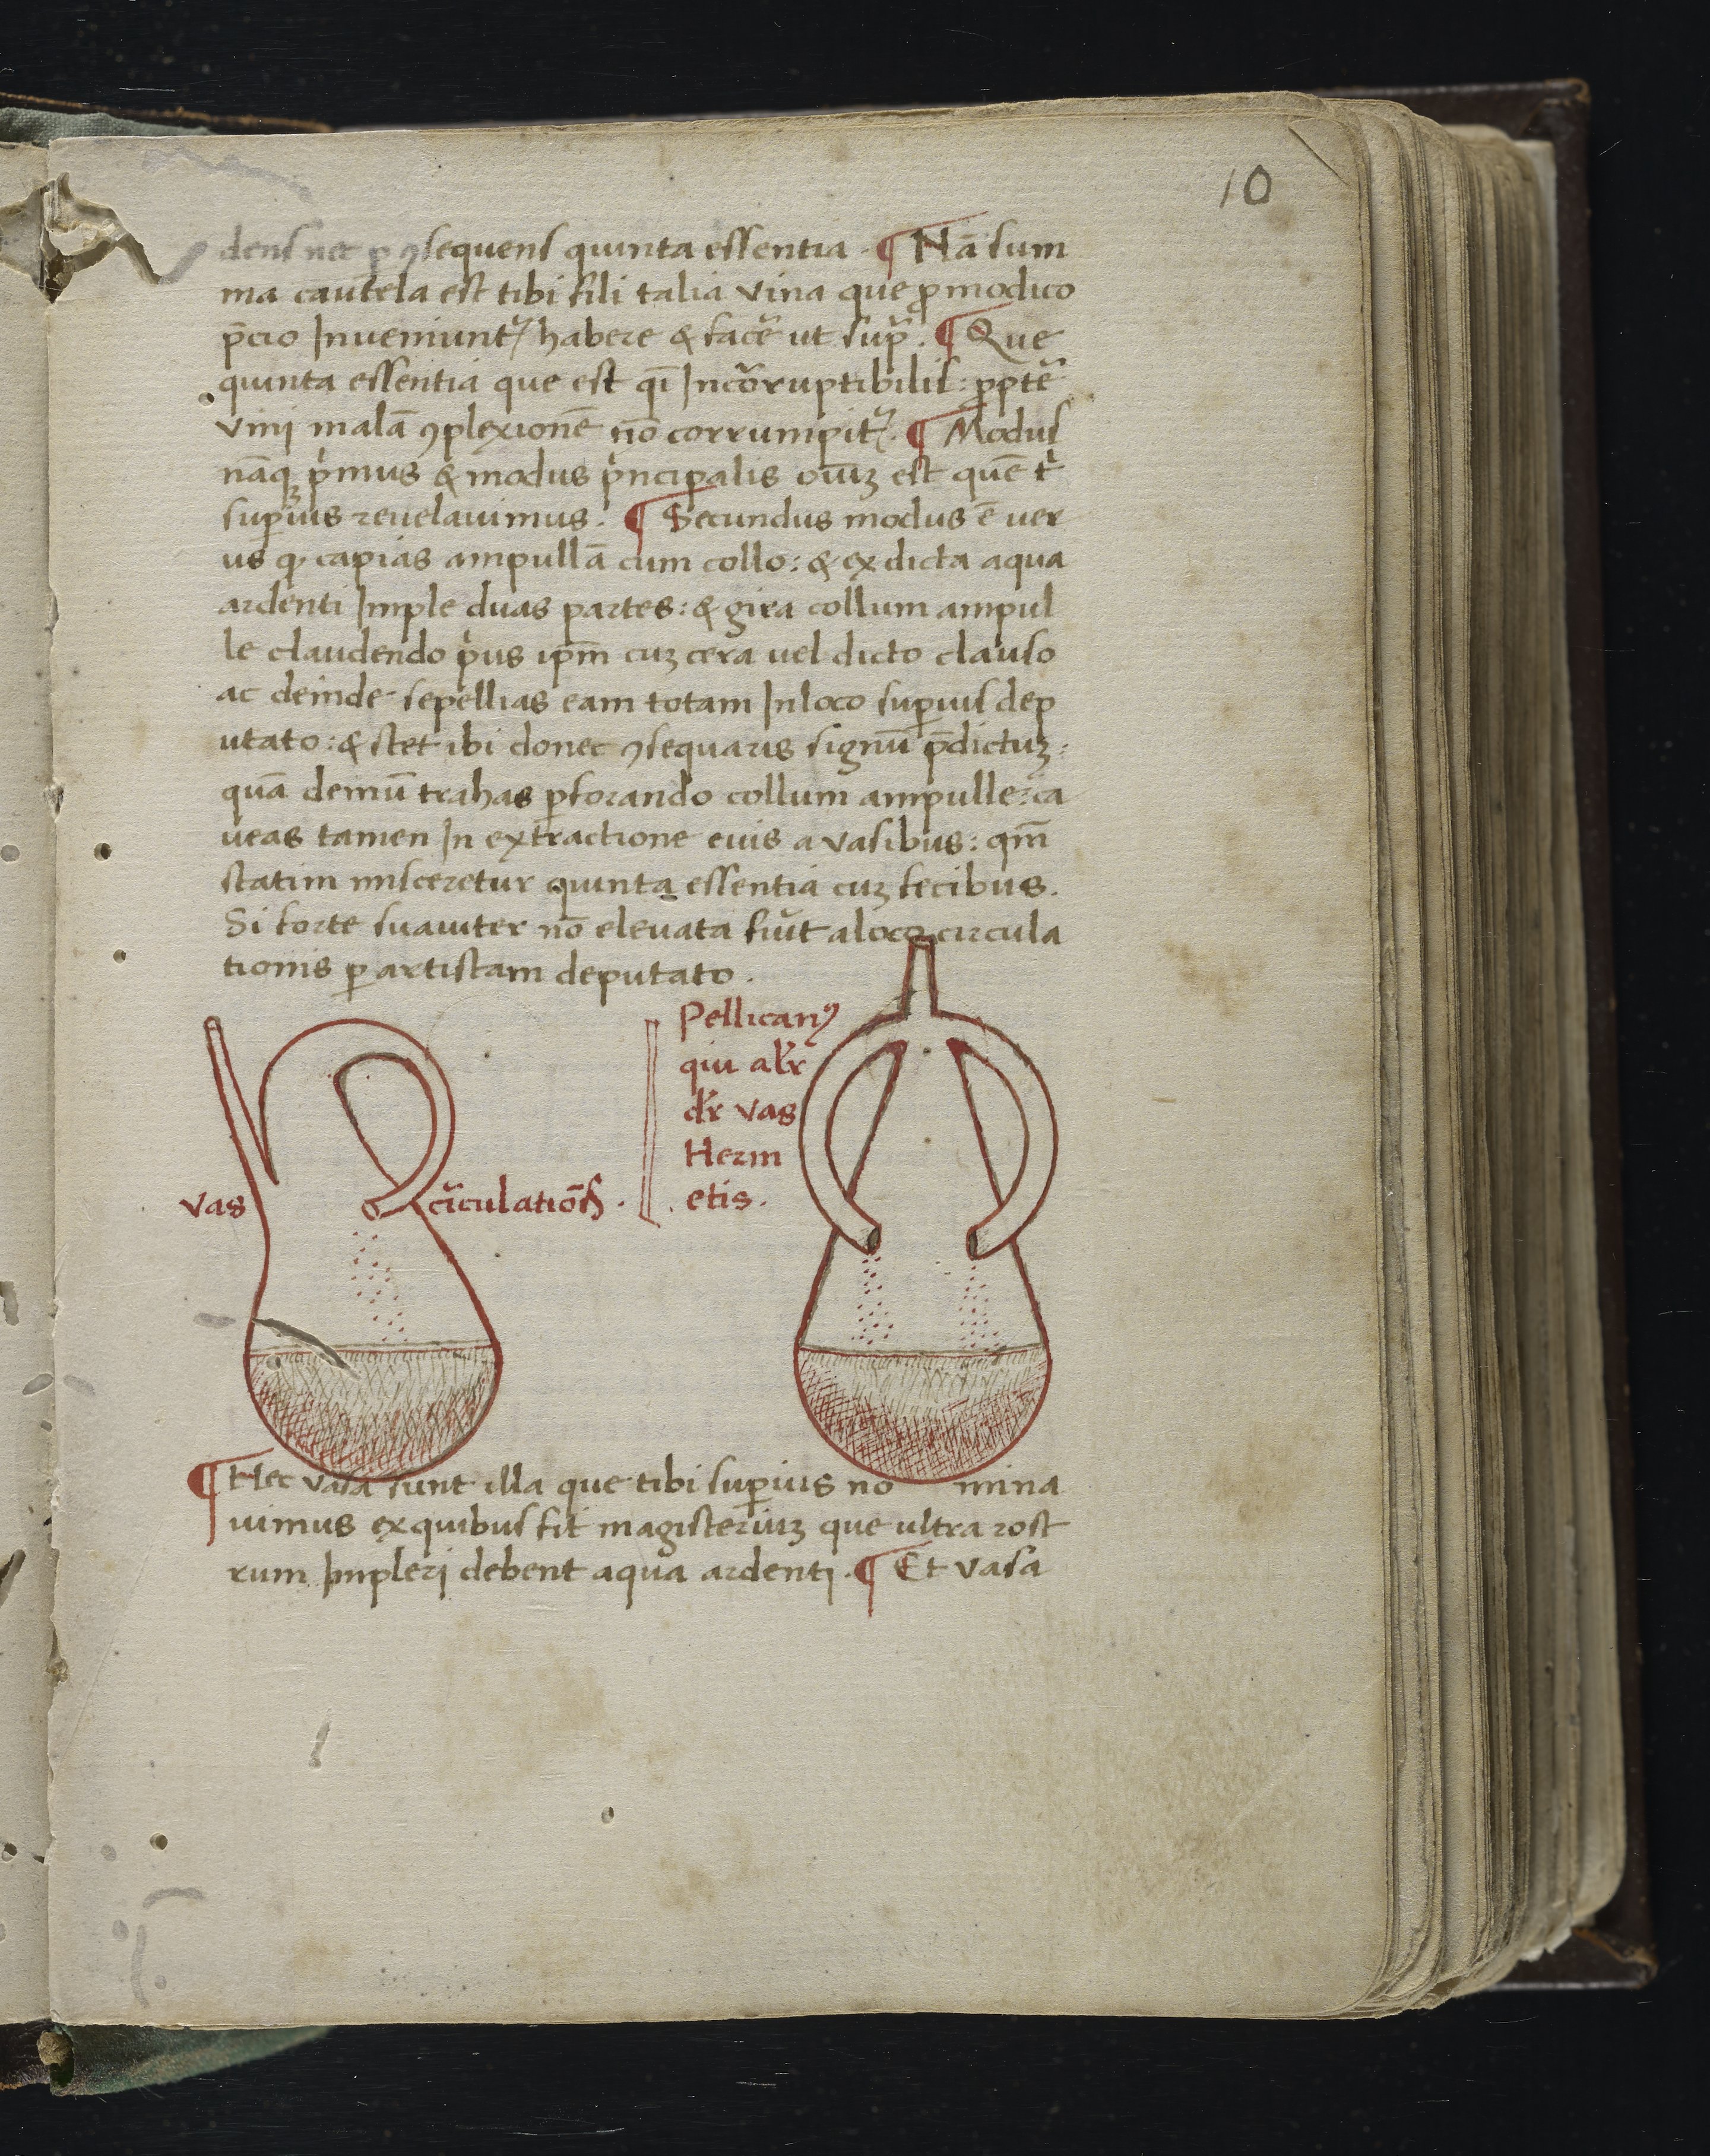 10
dens nec ꝑ ꝯsequens quinta essentia · ¶ Nā sum
ma cautela est tibi fili talia vina que ꝓ modico
p̄cio Inueniuntᷣ habere & facē ut sup̄ . ¶ Que
quinta essentia que est qī Incorruptibilis : ꝓptē
vini malā ꝯplexionē nō corrumpitᷣ . ¶ Modus
nāqꝫ pͥmus & modus pͥncipalis oīuꝫ est quē tͥ
suꝑius reuelauimus . ¶ Secundus modus ē uer
us ꝙ capias ampullā cum collo : & ex dicta aqua
ardenti Imple duas partes : & gira collum ampul
le claudendo pͥus ip̄m cuꝫ cera uel dicto clauso
ac deinde sepellias eam totam In loco suꝑius dep
utato : & stet ibi donec ꝯsequaris signū p̄dictuꝫ :
quā demū trahas ꝑforando collum ampulle : ca
ueas tamen In extractione euis a vasibus : qm̄
statim misceretur quinta essentia cuꝫ fecibus .
Si forte suauiter nō eleuata fuit a loco circula
tionis ꝑ artistam deputato .
vas circulatiōis .
Pellicanꝰ
qui alr̄
dr̄ vas
Herm
etis .
¶ Hec vasa sunt illa que tibi suꝑius no mina
uimus ex quibus fit magisteriuꝫ que ultra rost
rum Impleri debent aqua ardenti . ¶ Et vasa